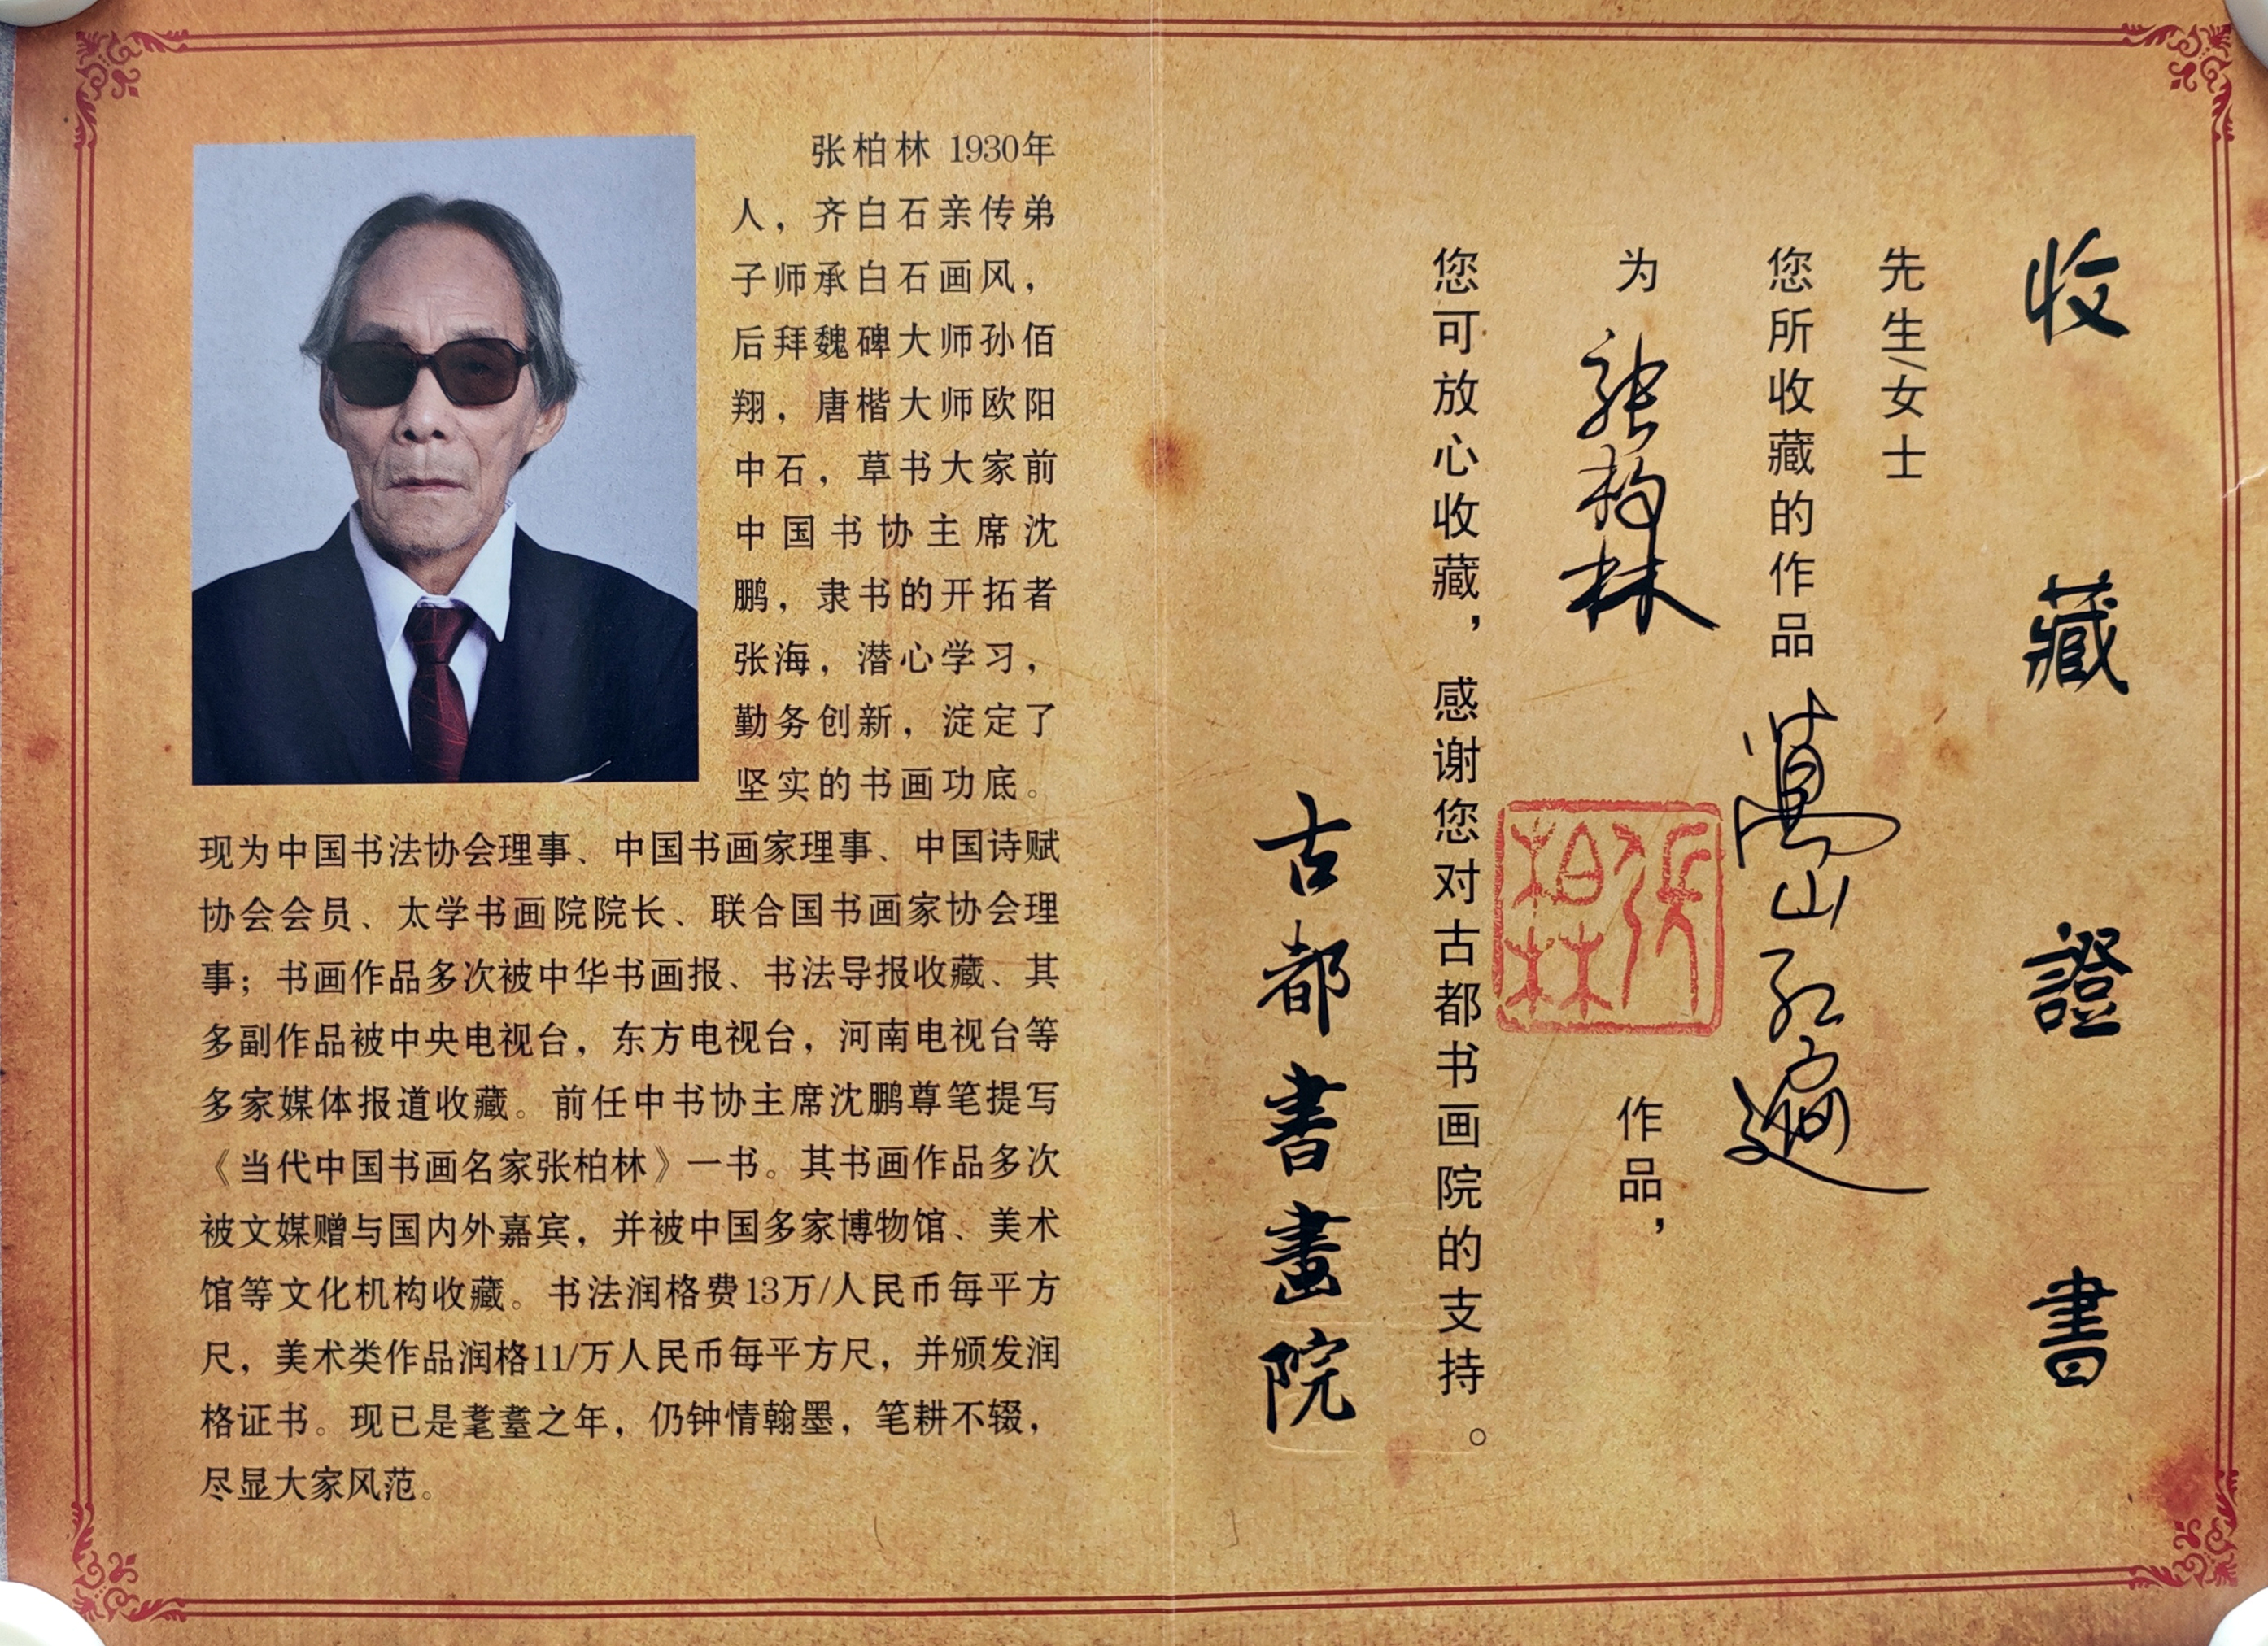 张柏林 1930年
人，齐白石亲传弟
子师承白石画风，
后拜魏碑大师孙佰
翔，唐楷大师欧阳
中石，草书大家前
中国书协主席沈
鹏，隶书的开拓者
张海，潜心学习，
勤务创新，淀定了
坚实的书画功底。
现为中国书法协会理事、中国书画家理事、中国诗赋
协会会员、太学书画院院长、联合国书画家协会理
事；书画作品多次被中华书画报、书法导报收藏、其
多副作品被中央电视台，东方电视台，河南电视台等
多家媒体报道收藏。前任中书协主席沈鹏尊笔提写
《当代中国书画名家张柏林》一书。其书画作品多次
被文媒赠与国内外嘉宾，并被中国多家博物馆、美术
馆等文化机构收藏。书法润格费13万/人民币每平方
尺，美术类作品润格11/万人民币每平方尺，并颁发润
格证书。现已是耄耋之年，仍钟情翰墨，笔耕不辍，
尽显大家风范。
收藏證書
先生/女士
您所收藏的作品 萬山红遍
为 张柏林 作品，
张柏林
您可放心收藏，感谢您对古都书画院的支持。
古都書畫院